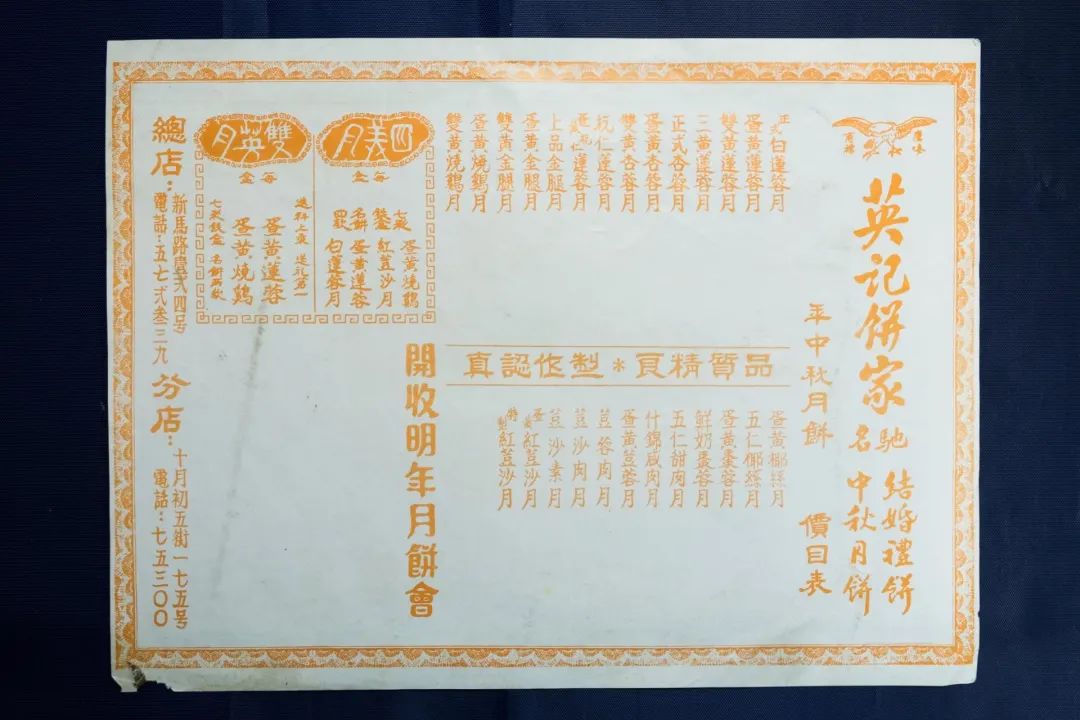 鷹嘜
商標
英記餅家
馳名
結婚禮餅
中秋月餅
年中秋月餅 價目表
正式白蓮蓉月
蛋黃蓮蓉月
雙黃蓮蓉月
三黃蓮蓉月
正式杏蓉月
蛋黃杏蓉月
雙黃杏蓉月
杬仁蓮蓉月
蓮蓉月
上品金腿月
蛋黃金腿月
雙黃金腿月
蛋黃燒鷄月
雙黃燒鷄月
品質精良*製作認真
蛋黃椰絲月
五仁椰絲月
蛋黃棗蓉月
鮮奶棗蓉月
五仁甜肉月
什錦咸肉月
蛋黃荳蓉月
荳蓉肉月
荳沙肉月
荳沙素月
蛋黃紅荳沙月
特製紅荳沙月
四義月
每盒
七彩 蛋黃燒鷄
鉄盒 紅荳沙月
名餅 蛋黃蓮蓉
四款 白蓮蓉月
雙英月
每盒
選料上乘 送礼第一
蛋黃蓮蓉
蛋黃燒鷄
七彩鉄盒 名餅兩款
開收明年月餅會
總店：新馬路壹弍四号
電話：五七弍叁三九
分店：十月初五街一七五号
電話：七五三〇〇